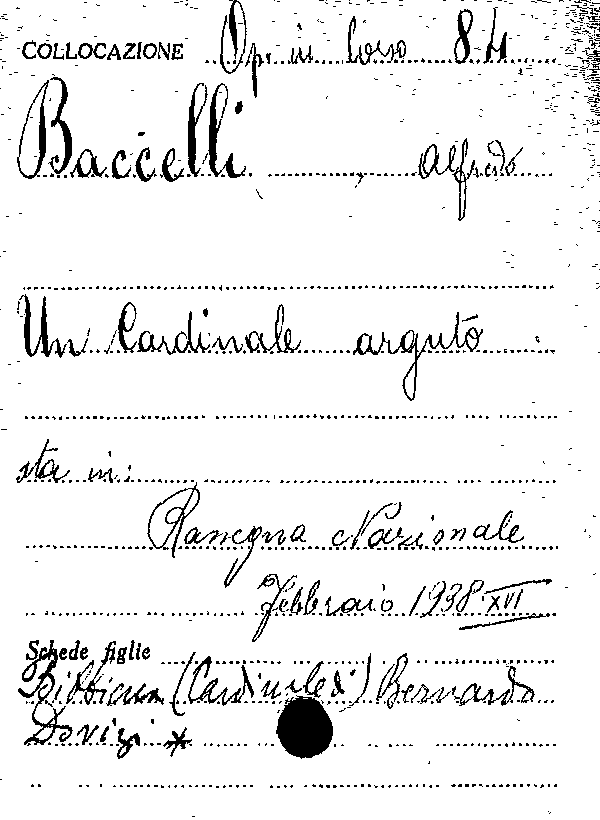 COLLOCAZIONE Op. in corso 84
Baccelli, Alfredo
Un Cardinale arguto.
sta in:
Rassegna Nazionale
Febbraio 1938.XVI
Schede figlie
Bibbiena (Cardinale di) Bernardo
Dovizi *